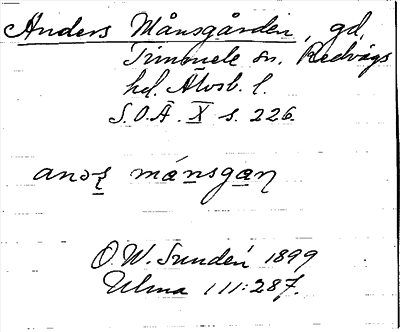 Anders Månsgården, gd,
Timmele sn. Redvägs
hd. Älvsb. l.
S.O.Ä. X s. 226.
månsgan
O.W. Sundén 1899
Ulma 111:287.